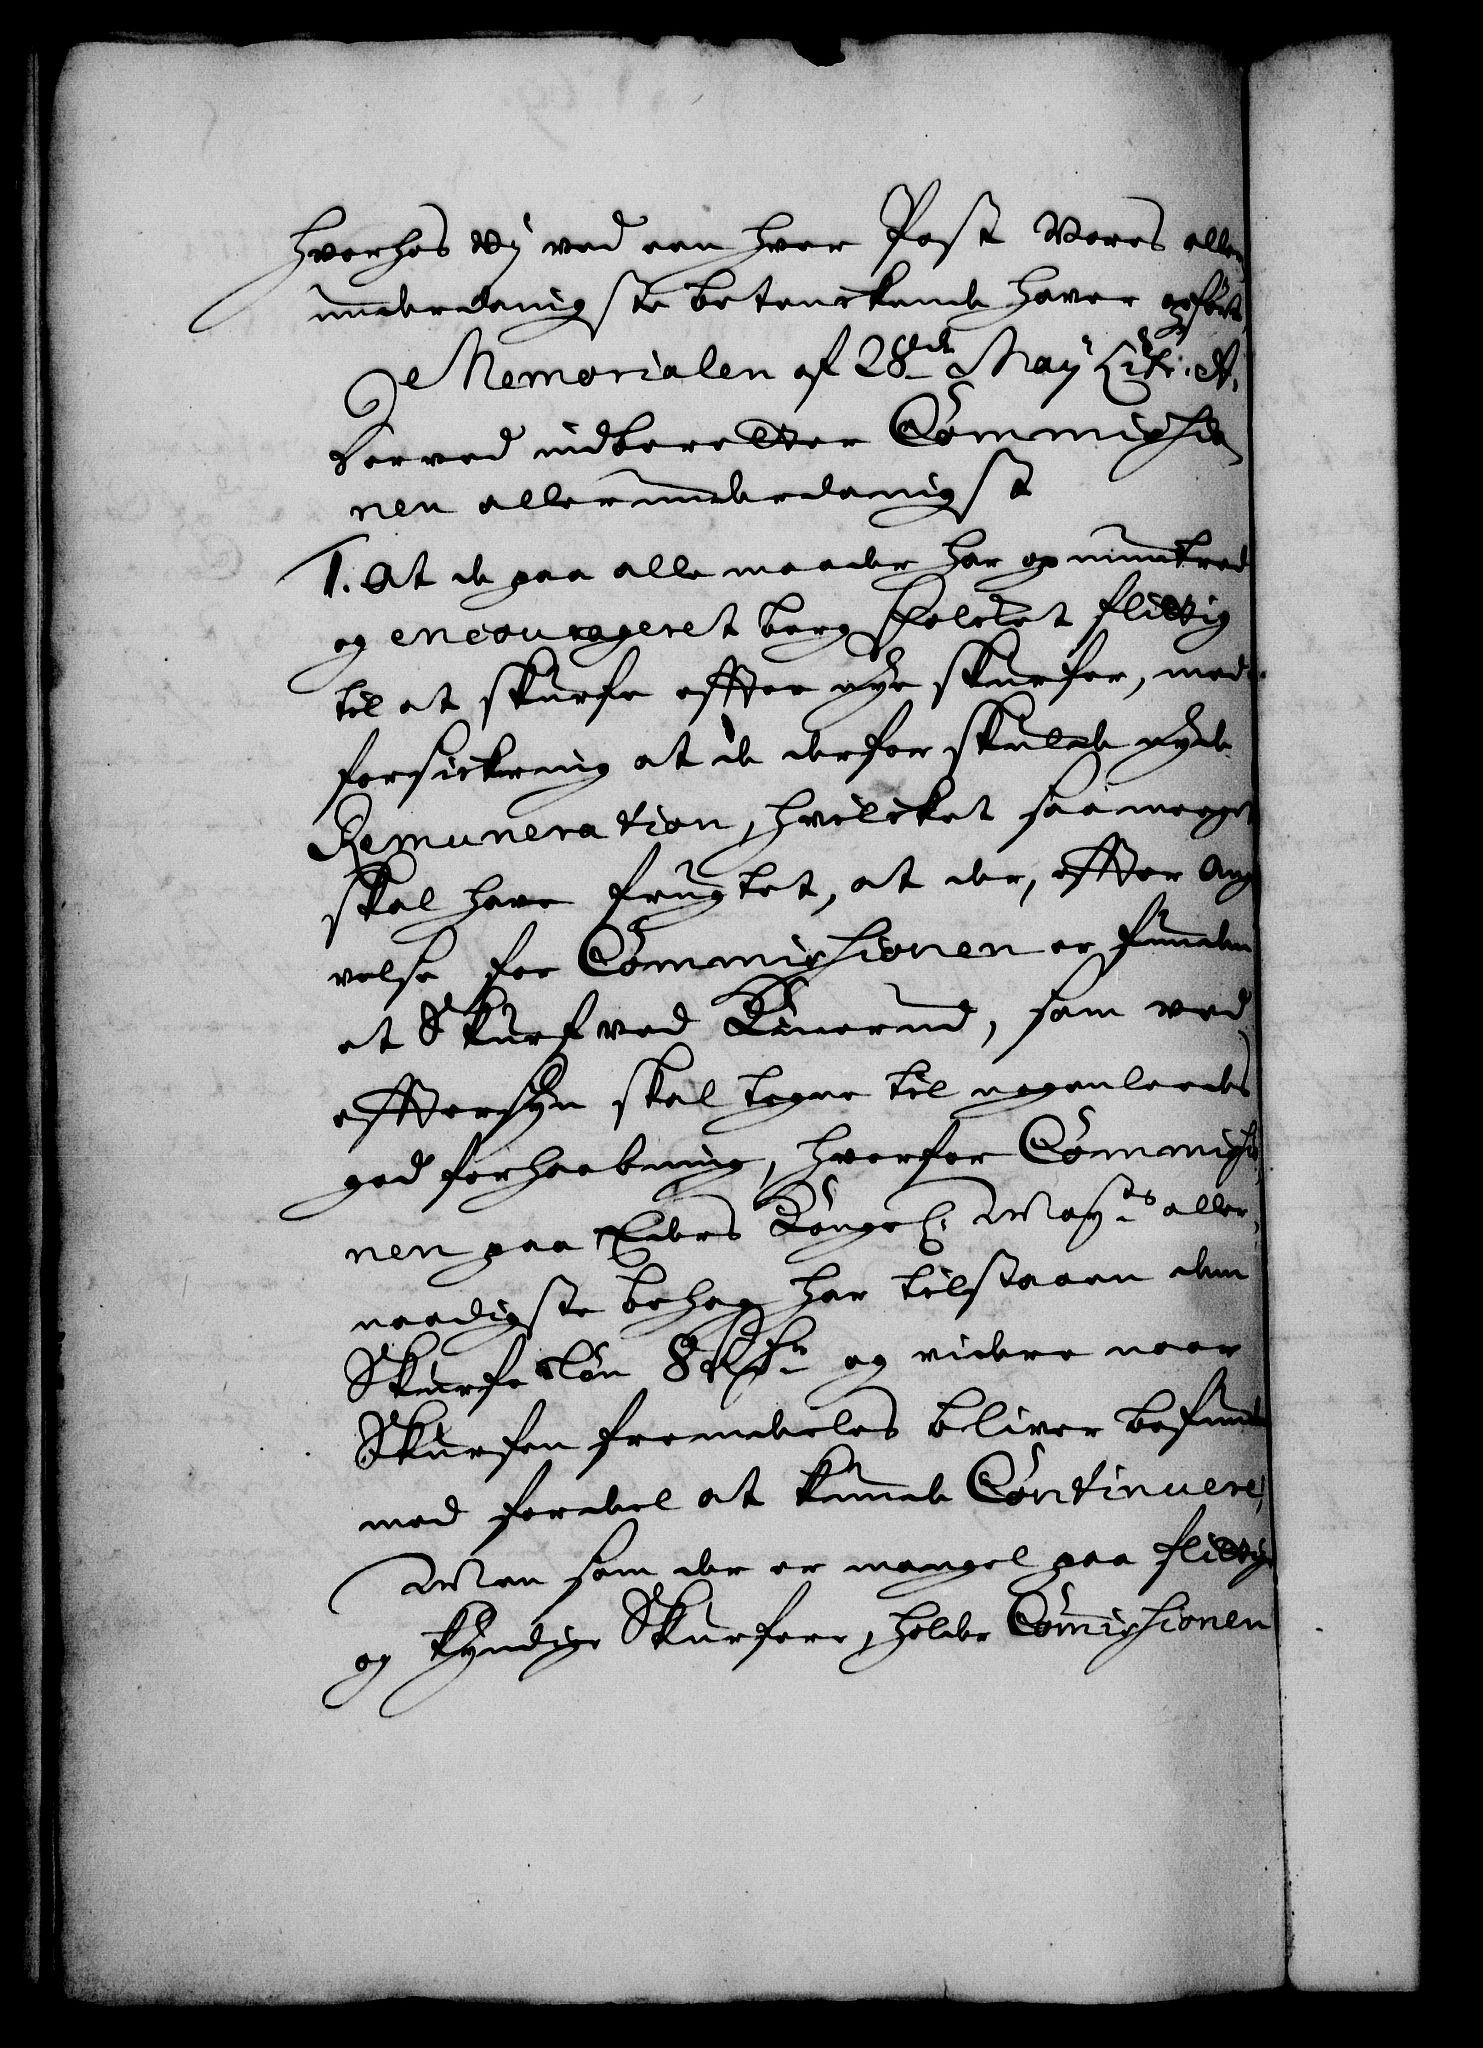 hvorhos Wj ved een hver Post Vores aller
underdanigste betenckende haver opført,
Memorialen af 28de Maÿ Lit: A.
Derved indberetter Commissio
nen allerunderdanigst
1. At de paa alle maader har opmuntred
og encourageret berg folcket flittig
til at skurfe efter nÿe skurfer, med
forsickring at de derfor skulde nÿde
Remuneration, hvilcket saa meget
skal have frugtet, at der, efter Angi
velse for Commissionen er funden
et Skurf ved Kinerud, som ved
eftersÿn skal tegne til nogenledes
god forhaabning, hvorfor Commissio
nen paa Eders Kongel. Mayts aller
naadigste behag har tilstaaen dem
Skurfe løn 8 Rdr og videre naar
Skurfen fremdeeles bliver befunden
med fordeel at kunde Continuere,
Men som der er mangel paa flittige
og kÿndige Skurfere, holder Commissionen